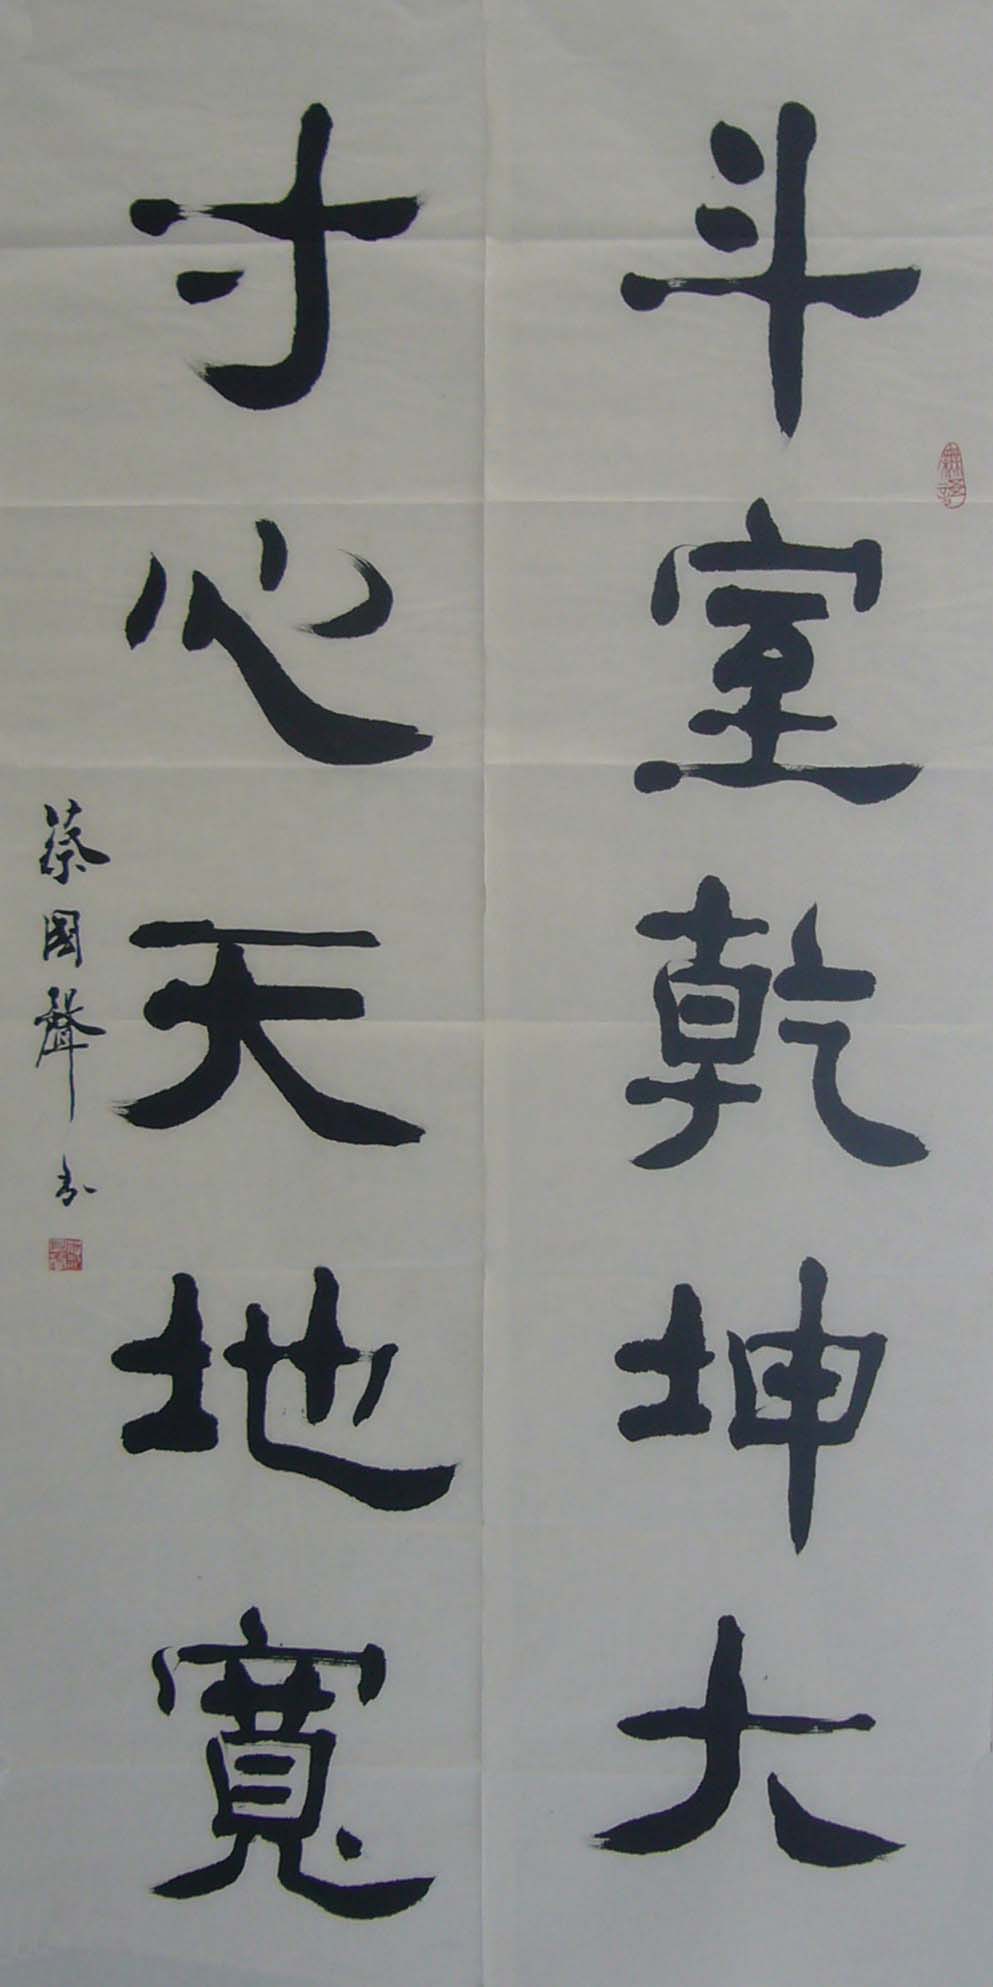 斗室乾坤大
寸心天地寬
蔡國聲書